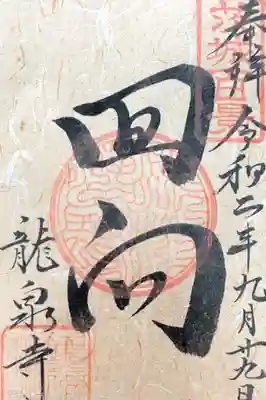 奉拝 令和二年九月廿九日
回向
龍泉寺